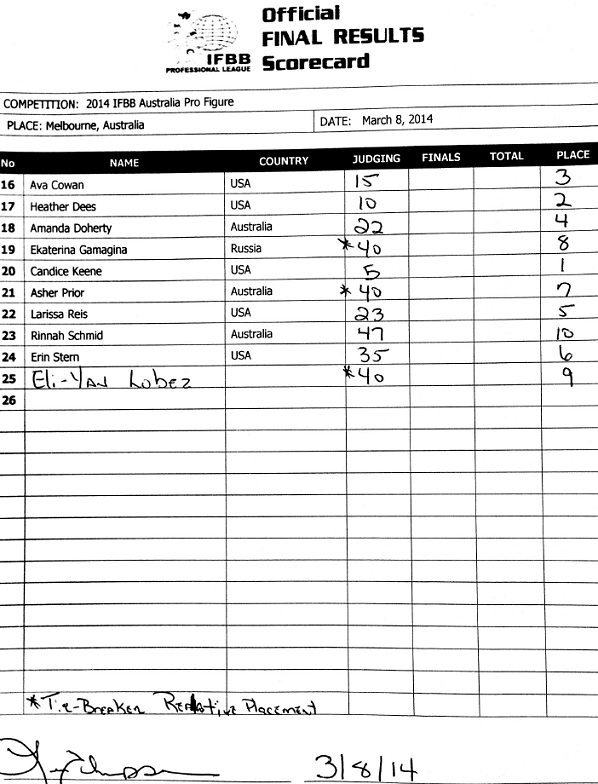 Official
FINAL RESULTS
Scorecard
IFBB
PROFESSIONAL LEAGUE
COMPETITION: 2014 IFBB Australia Pro Figure
PLACE: Melbourne, Australia DATE: March 8, 2014
No NAME COUNTRY JUDGING FINALS TOTAL PLACE
16 Ava Cowan USA 15 3
17 Heather Dees USA 10 2
18 Amanda Doherty Australia 22 4
19 Ekaterina Gamagina Russia *40 8
20 Candice Keene USA 5 1
21 Asher Prior Australia *40 7
22 Larissa Reis USA 23 5
23 Rinnah Schmid Australia 47 10
24 Erin Stern USA 35 6
25 Eli-Yan Lobez *40 9
26
*Tie-Breaker Relative Placement
3/8/14